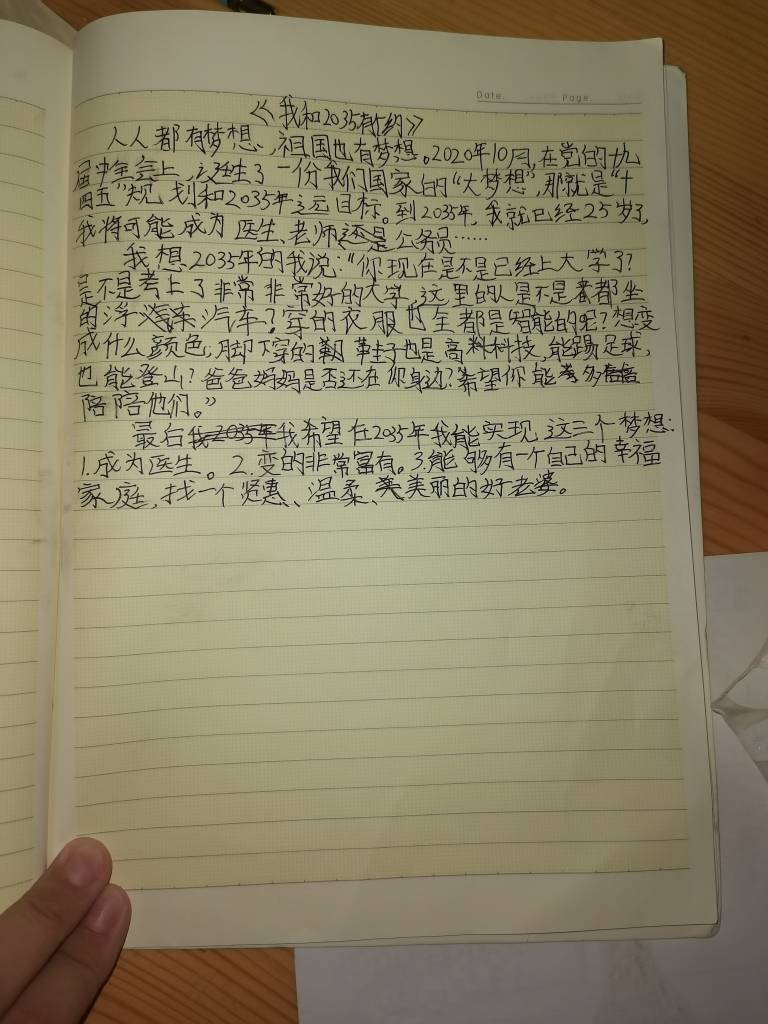 Date. Page.
《我和2035有个约》
人人都有梦想，祖国也有梦想。2020年10月，在党的十九
届中全会上，诞生了一份我们国家的“大梦想”，那就是“十
四五”规划和2035年远目标。到2035年，我就已经25岁了，
我将可能成为医生、老师还是公务员……
我想2035年的我说：“你现在是不是已经上大学了？
是不是考上了非常非常好的大学，这里的人是不是都坐
的浮汽车？穿的衣服也全都是智能的呢？想变
成什么颜色，脚下穿的鞋子也是高科技，能踢足球，
也能登山？爸爸妈妈是否还在你身边？希望你能多
陪陪他们。”
最后我希望在2035年我能实现这三个梦想：
1.成为医生。2.变的非常富有。3.能够有一个自己的幸福
家庭，找一个贤惠、温柔、美丽的好老婆。